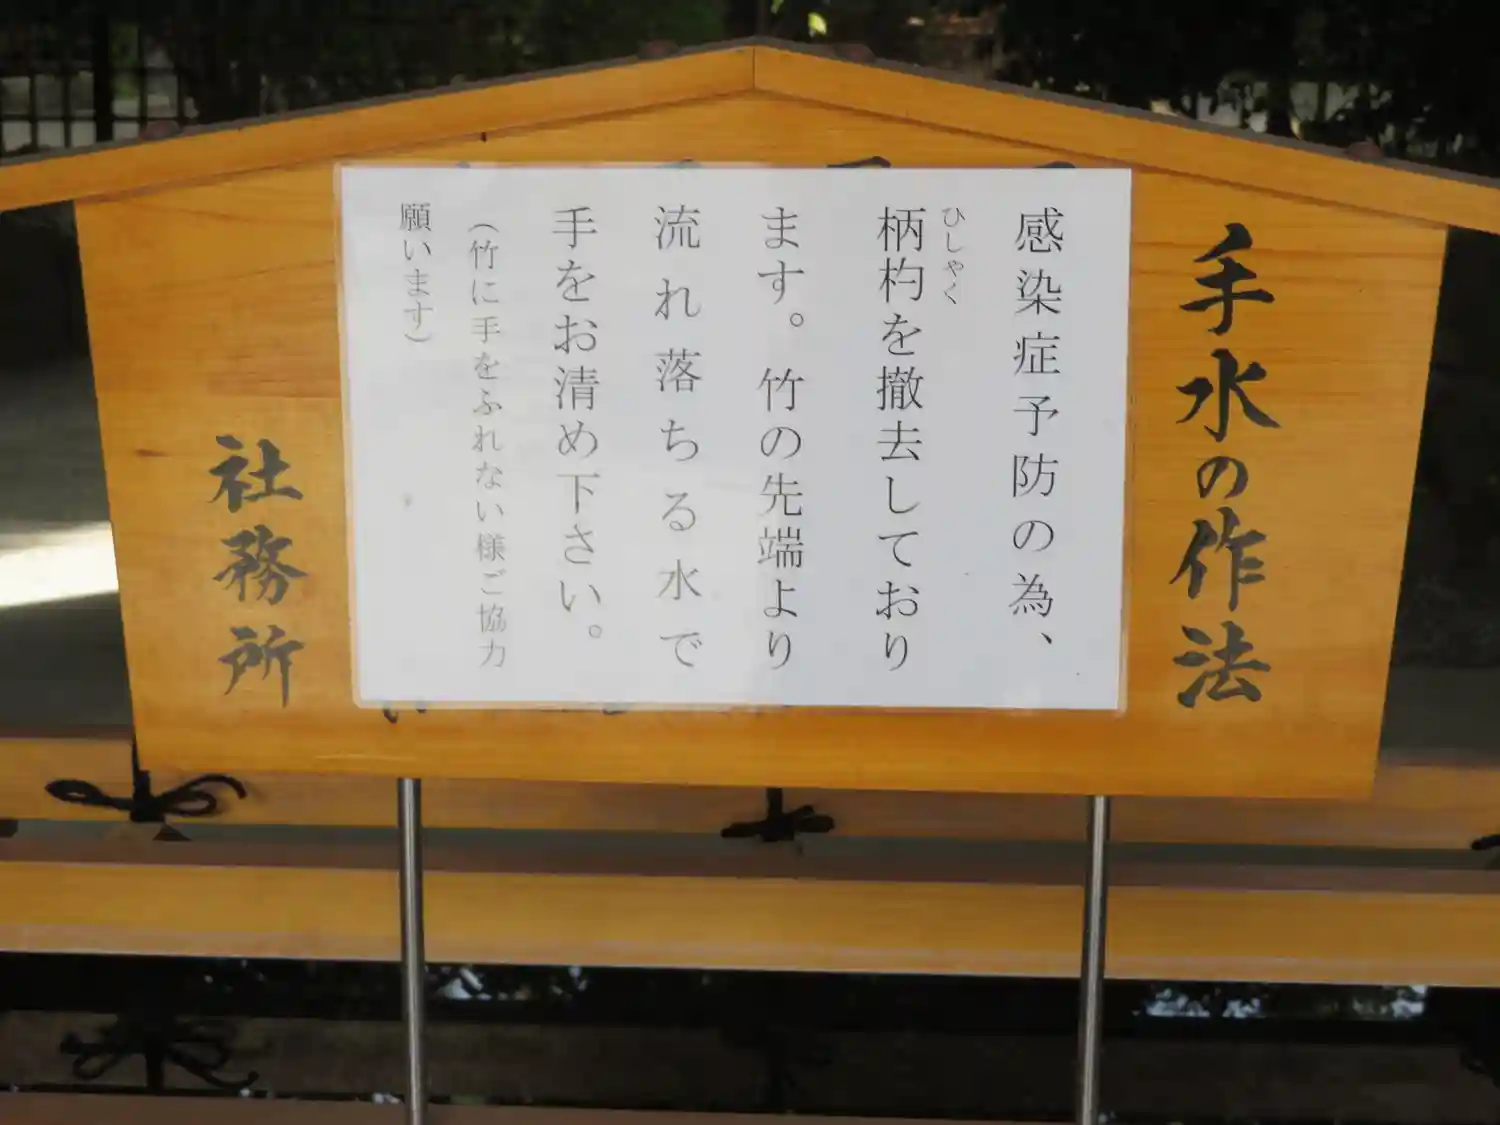 手水の作法
感染症予防の為、
ひしゃく
柄杓を撤去しており
ます。竹の先端より
流れ落ちる水で
手をお清め下さい。
（竹に手をふれない様ご協力
願います）
社務所